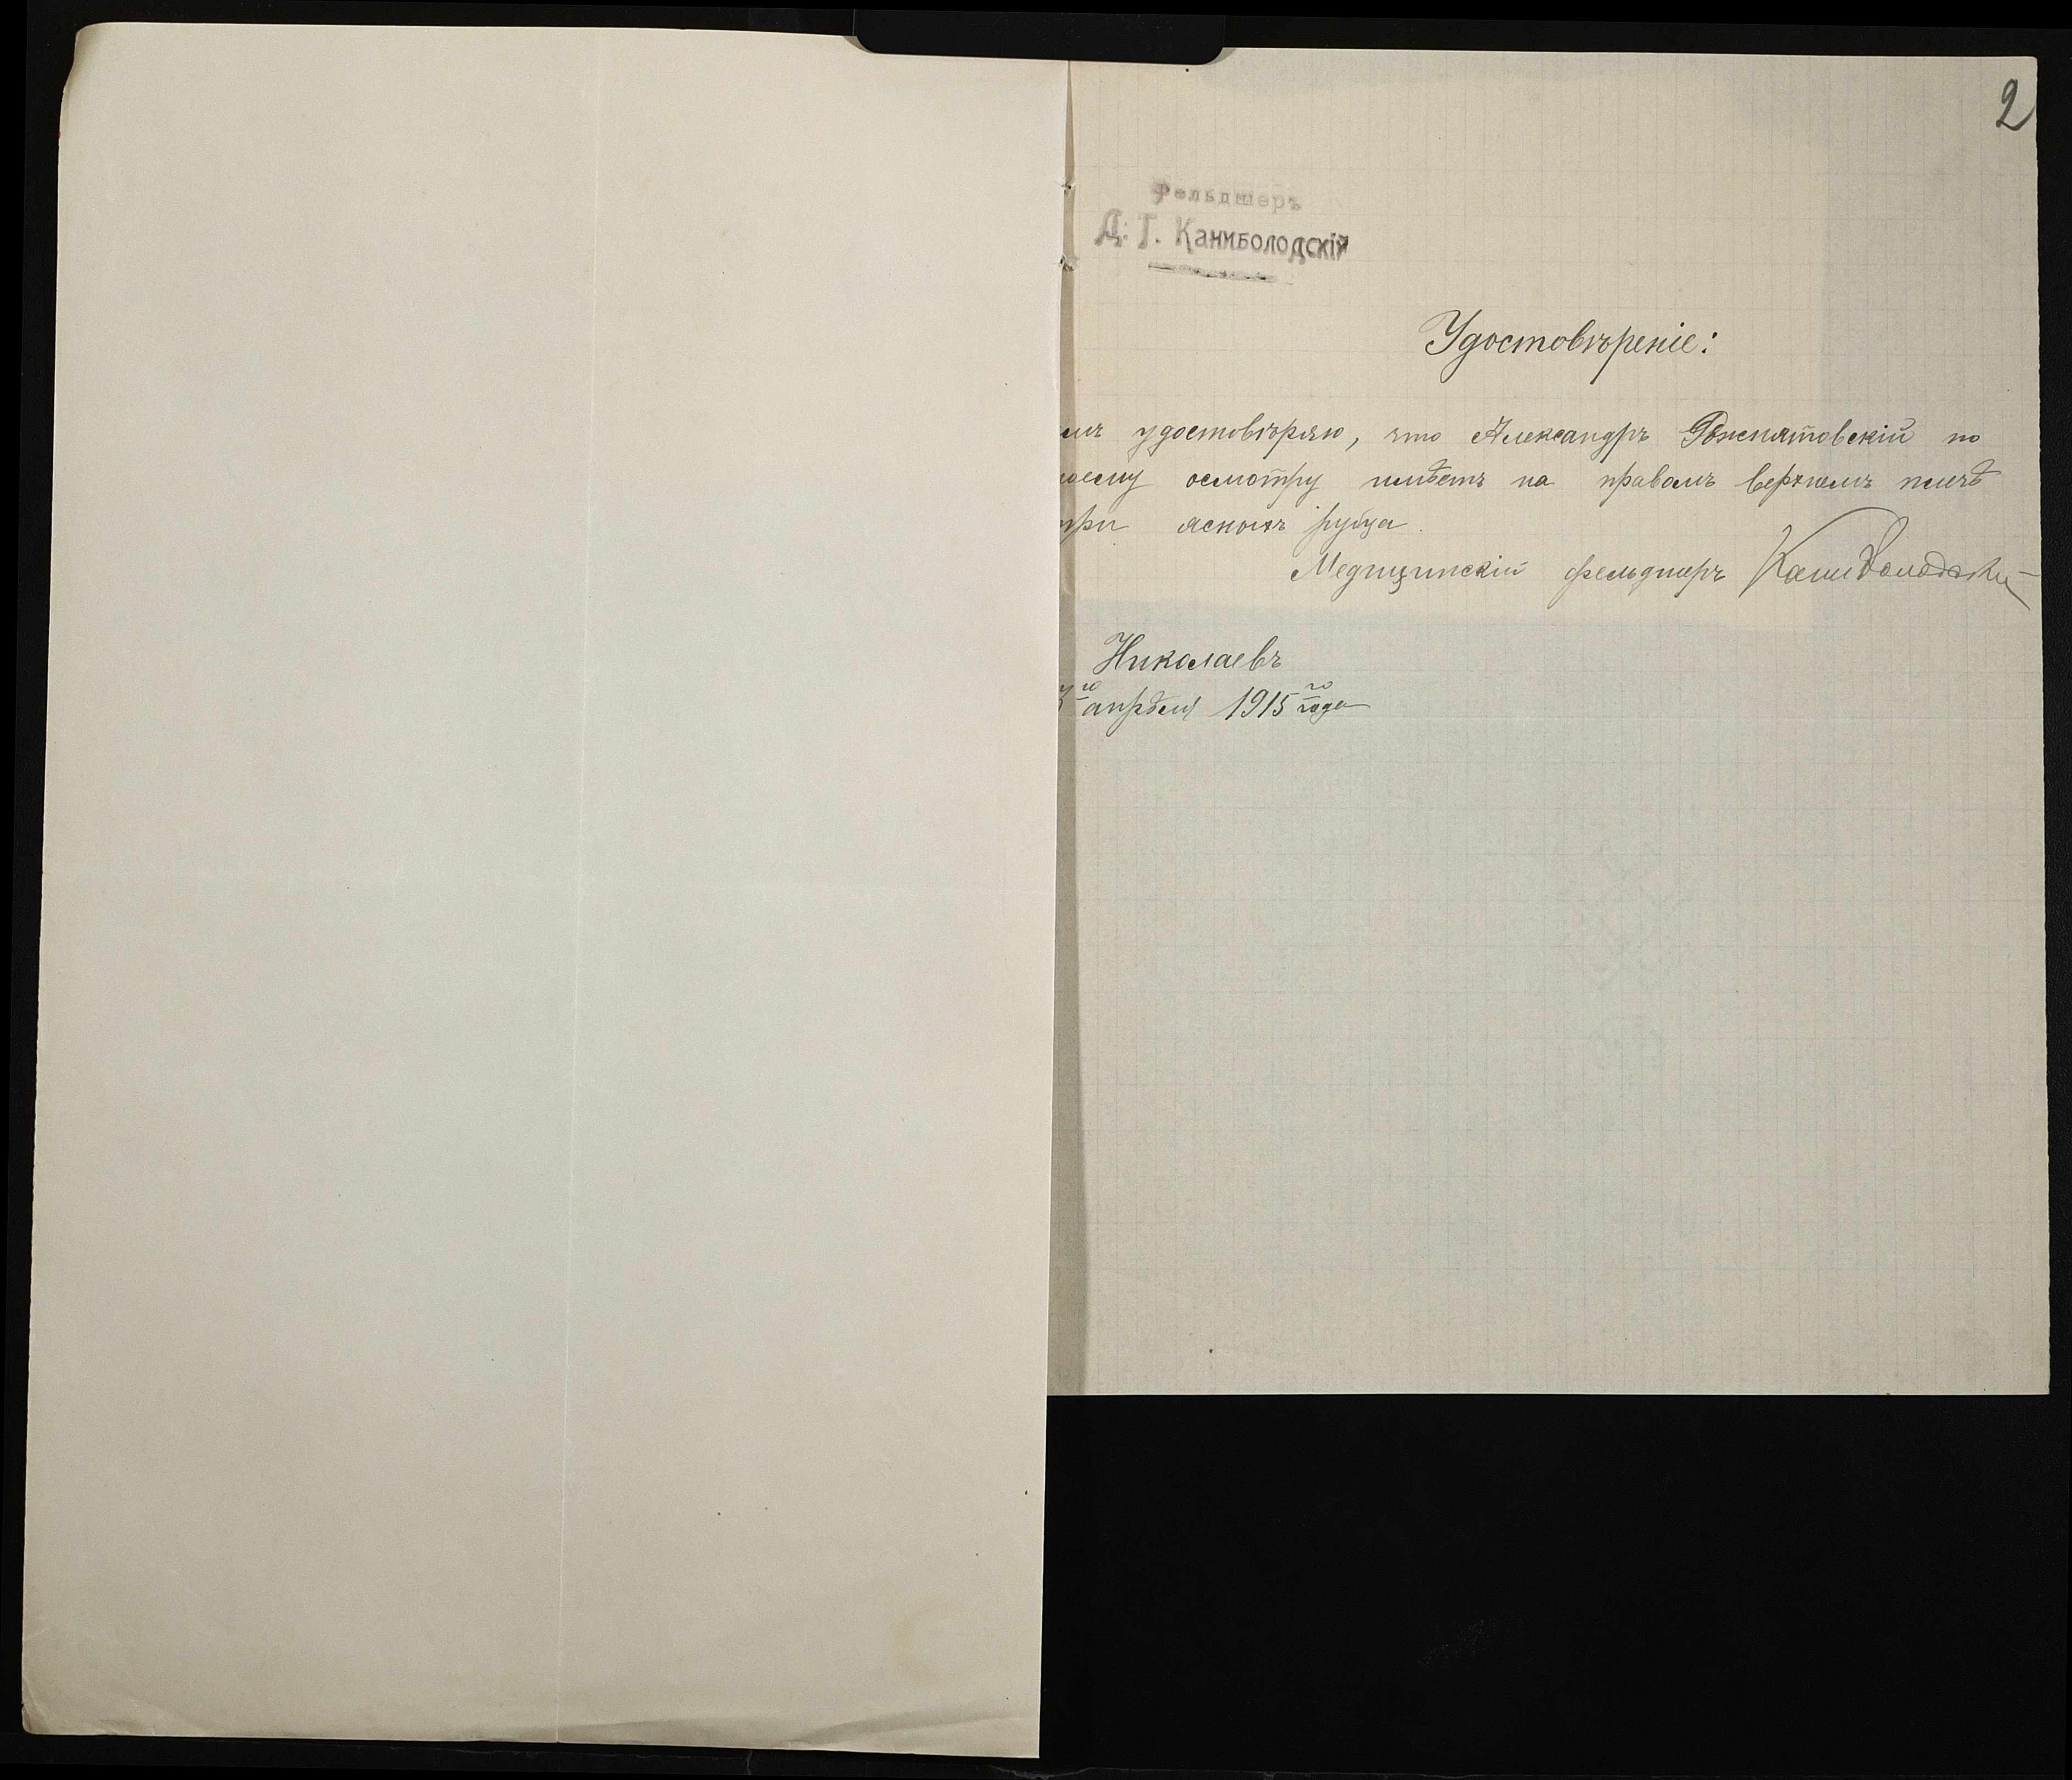 2
Фельдшеръ
Д. Г. Каниболодскій
Удостовѣреніе:
мъ удостовѣряю, что Александръ Рожнятовскій по
моему осмотру имѣетъ на правомъ верхнемъ плечѣ
три ясныхъ рубца.
Медицинскій фельдшеръ Каниболодскій
Николаевъ
го апрѣля 1915 го года